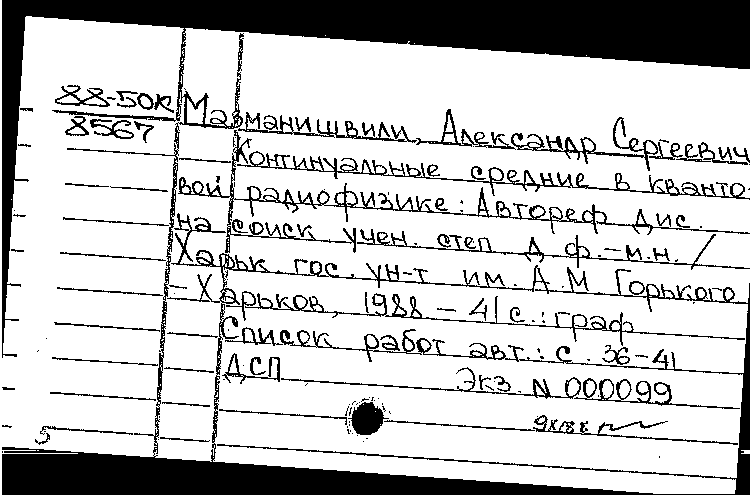 88-50к
8567
Мазманишвили, Александр Сергеевич
Континуальные средние в кванто-
вой радиофизике: Автореф дис.
на соиск. учен. степ. д ф.-м.н. /
Харьк. гос. ун-т им. А.М Горького
- Харьков, 1988 - 41 с.: граф
Список работ авт.: с. 36-41
ДСП Экз. N 000099
5